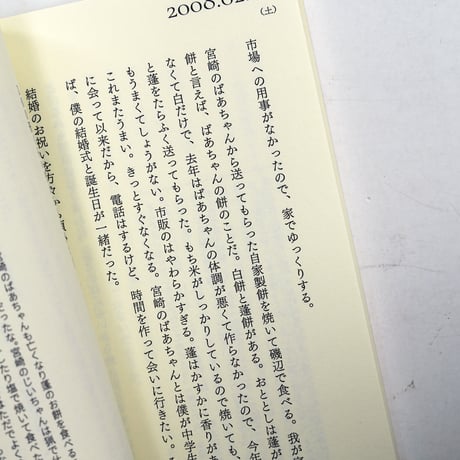 2008.02.
（土）
市場への用事がなかったので、家でゆっくりする。
宮崎のばあちゃんから送ってもらった自家製餅を焼いて磯辺で食べる。我が家
餅と言えば、ばあちゃんの餅のことだ。白餅と蓬餅がある。おととしは蓬が
なくて白だけで、去年はばあちゃんの体調が悪くて作らなかったので、今年
と蓬をたらふく送ってもらった。もち米がしっかりしているので焼いても、
もうまくてしょうがない。市販のはやわらかすぎる。蓬はかすかに香りがあ
これまたうまい。きっとすぐなくなる。宮崎のばあちゃんとは僕が中学生
に会って以来だから、電話はするけど、時間を作って会いに行きたい。
ば、僕の結婚式と誕生日が一緒だった。
結婚のお祝いを方々から頂
宮崎のばあちゃんも亡くなり蓬のお餅を食べる
だったな。宮崎のじいちゃんは猟で
たり塩で焼いて食べた
ただでよく